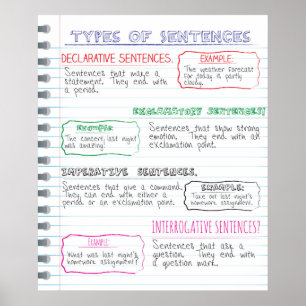 TYPES OF SENTENCES
DECLARATIVE SENTENCES.
Sentences that make a
statement. They end with
a period.
EXAMPLE:
The weather forecast
for today is partly
cloudy.
EXCLAMATORY SENTENCES!
Example:
The concert last night
was amazing!
Sentences that show strong
emotion. They end with
an exclamation point.
IMPERATIVE SENTENCES.
Sentences that give a command.
They can end with either
a period or an exclamation point.
Example:
Take out last night's
homework assignment.
INTERROGATIVE SENTENCES?
EXAMPLE:
What was last night's
homework assignment?
Sentences that ask a
question. They end with
a question mark.